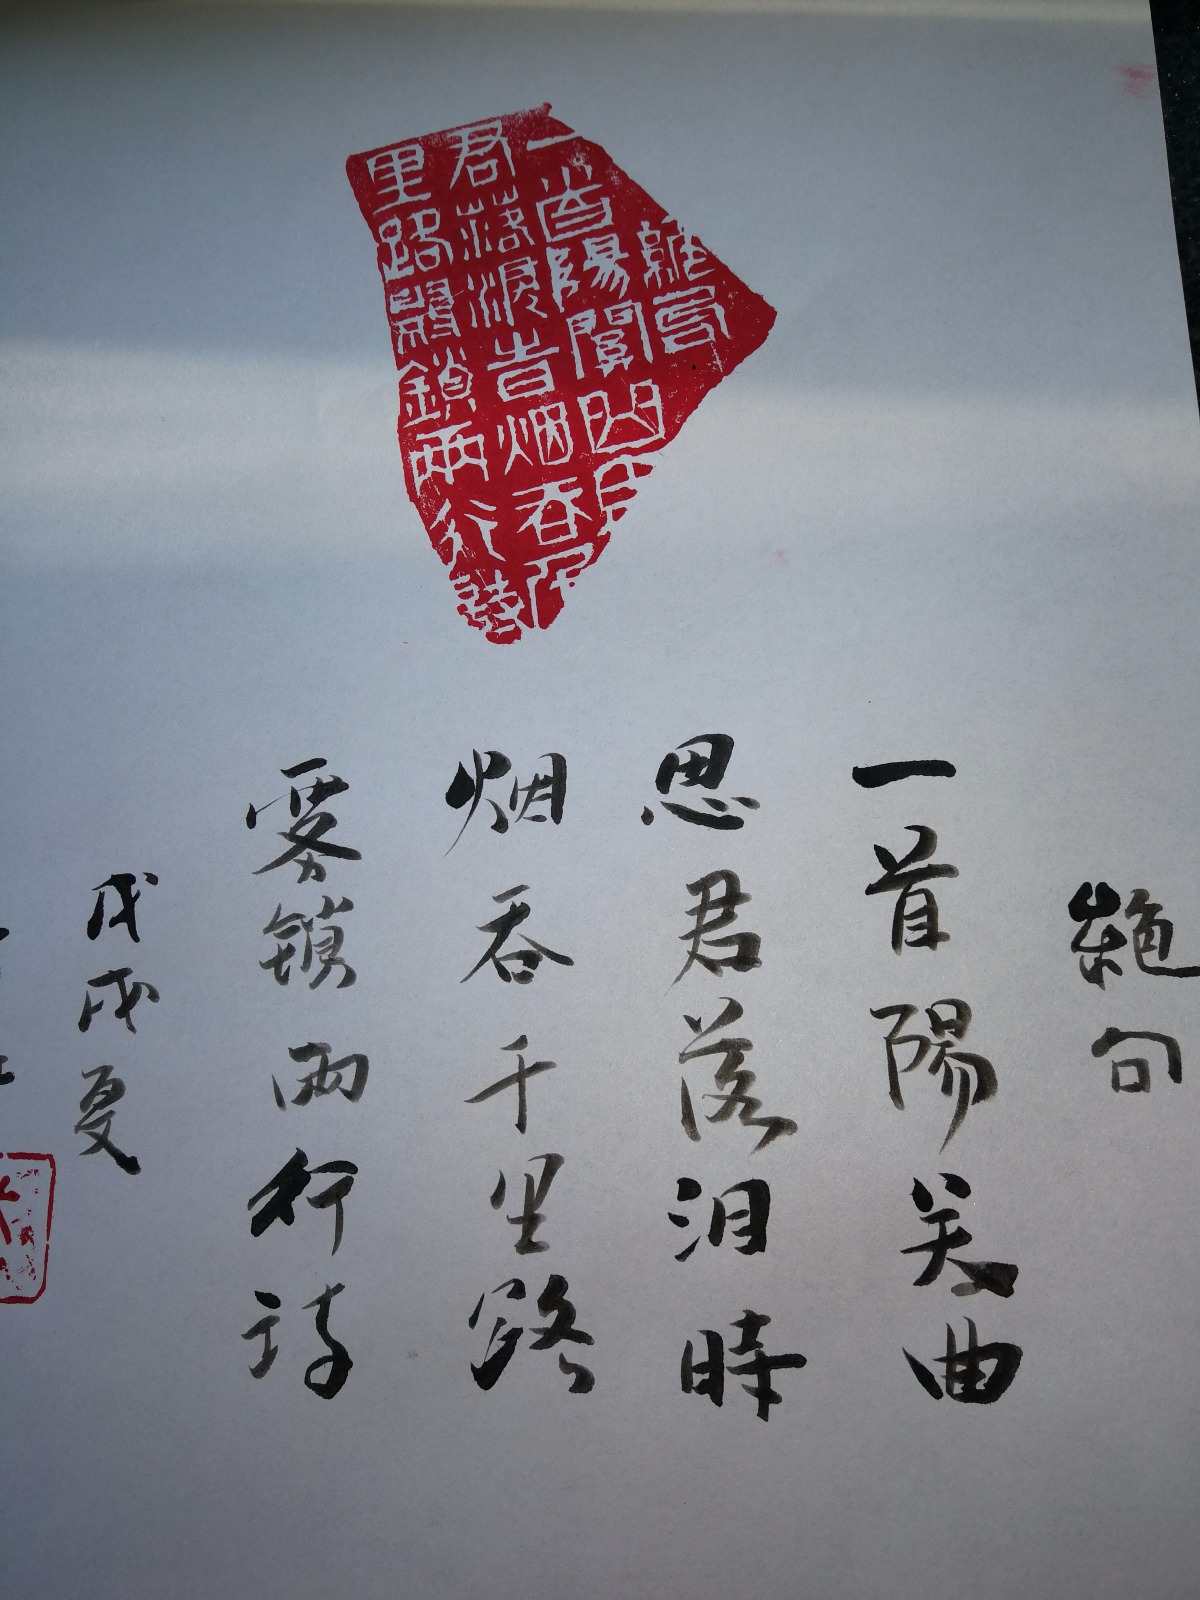 絶句
一首陽關曲思
君落淚時烟吞千
里路霧鎖兩行詩
絶句
一首陽关曲
思君落泪時
烟吞千里路
雾鎖兩行詩
戊戌夏